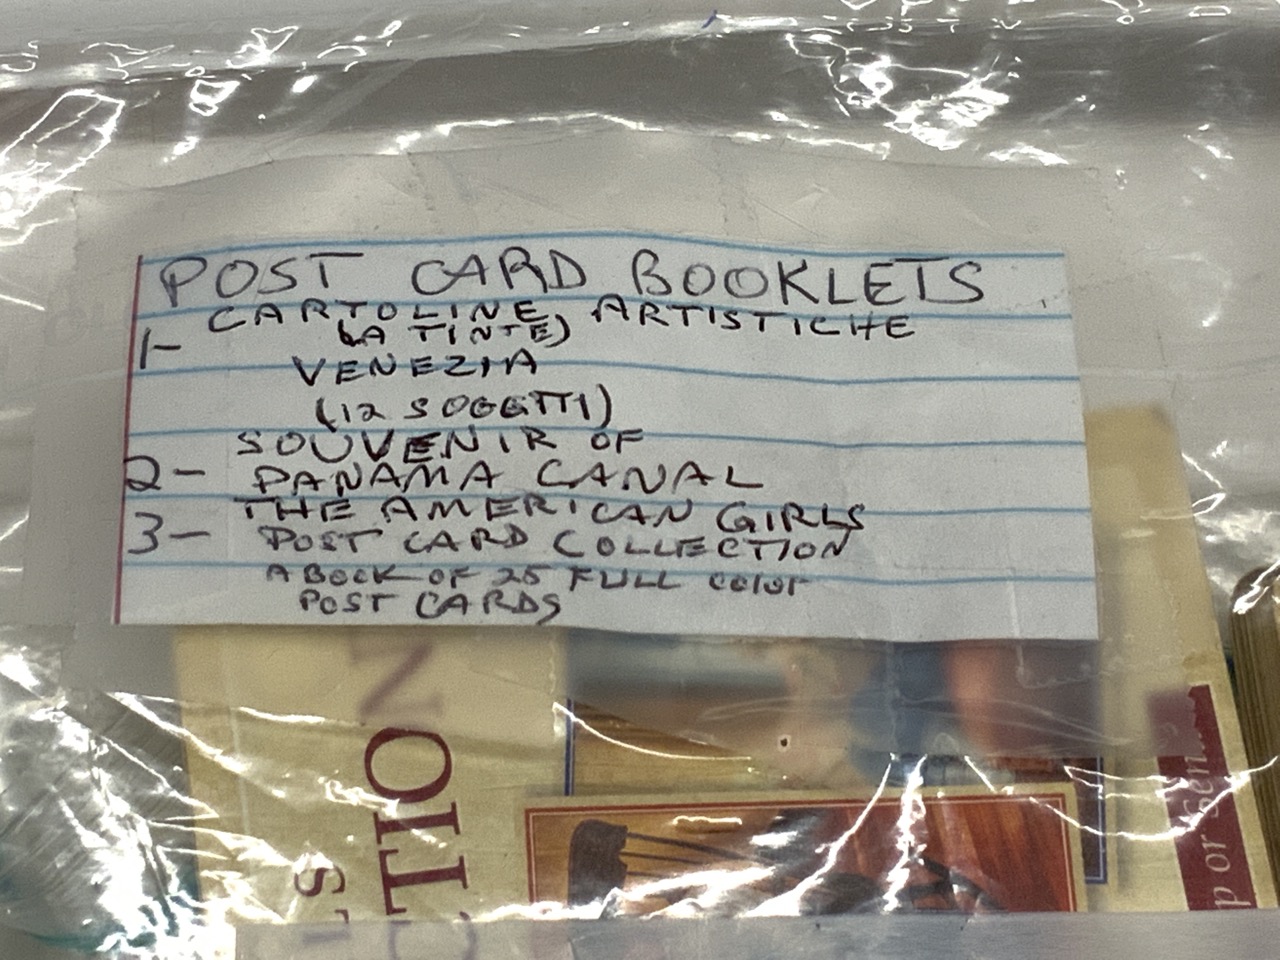 POST CARD BOOKLETS
CARTOLINE ARTISTICHE
1- (A TINTE)
VENEZIA
(12 SOGETTI)
SOUVENIR OF
2- PANAMA CANAL
THE AMERICAN GIRLS
3- POST CARD COLLECTION
A BOOK OF 25 FULL COLOR
POST CARDS
CTION
LS
p or sen